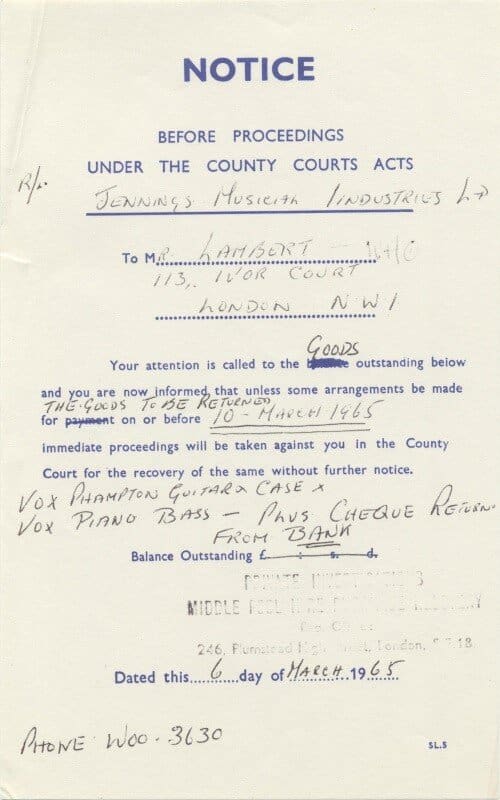 NOTICE
BEFORE PROCEEDINGS
UNDER THE COUNTY COURTS ACTS
JENNINGS MUSICAL INDUSTRIES LTD
To MR. LAMBERT
113, IVOR COURT
LONDON NW1
GOODS
Your attention is called to the balance outstanding below
and you are now informed that unless some arrangements be made
THE GOODS TO BE RETURNED
for payment on or before 10 - MARCH 1965
immediate proceedings will be taken against you in the County
Court for the recovery of the same without further notice.
VOX PHAMPTON GUITAR & CASE x
VOX PIANO BASS - PLUS CHEQUE RETURN.
FROM BANK
Balance Outstanding £ : s. d.
PRIVATE
MIDDLE
246, Plumstead High Street, London, S.E.18
Dated this 6 day of MARCH 1965
PHONE WOO. 3630
SL.5